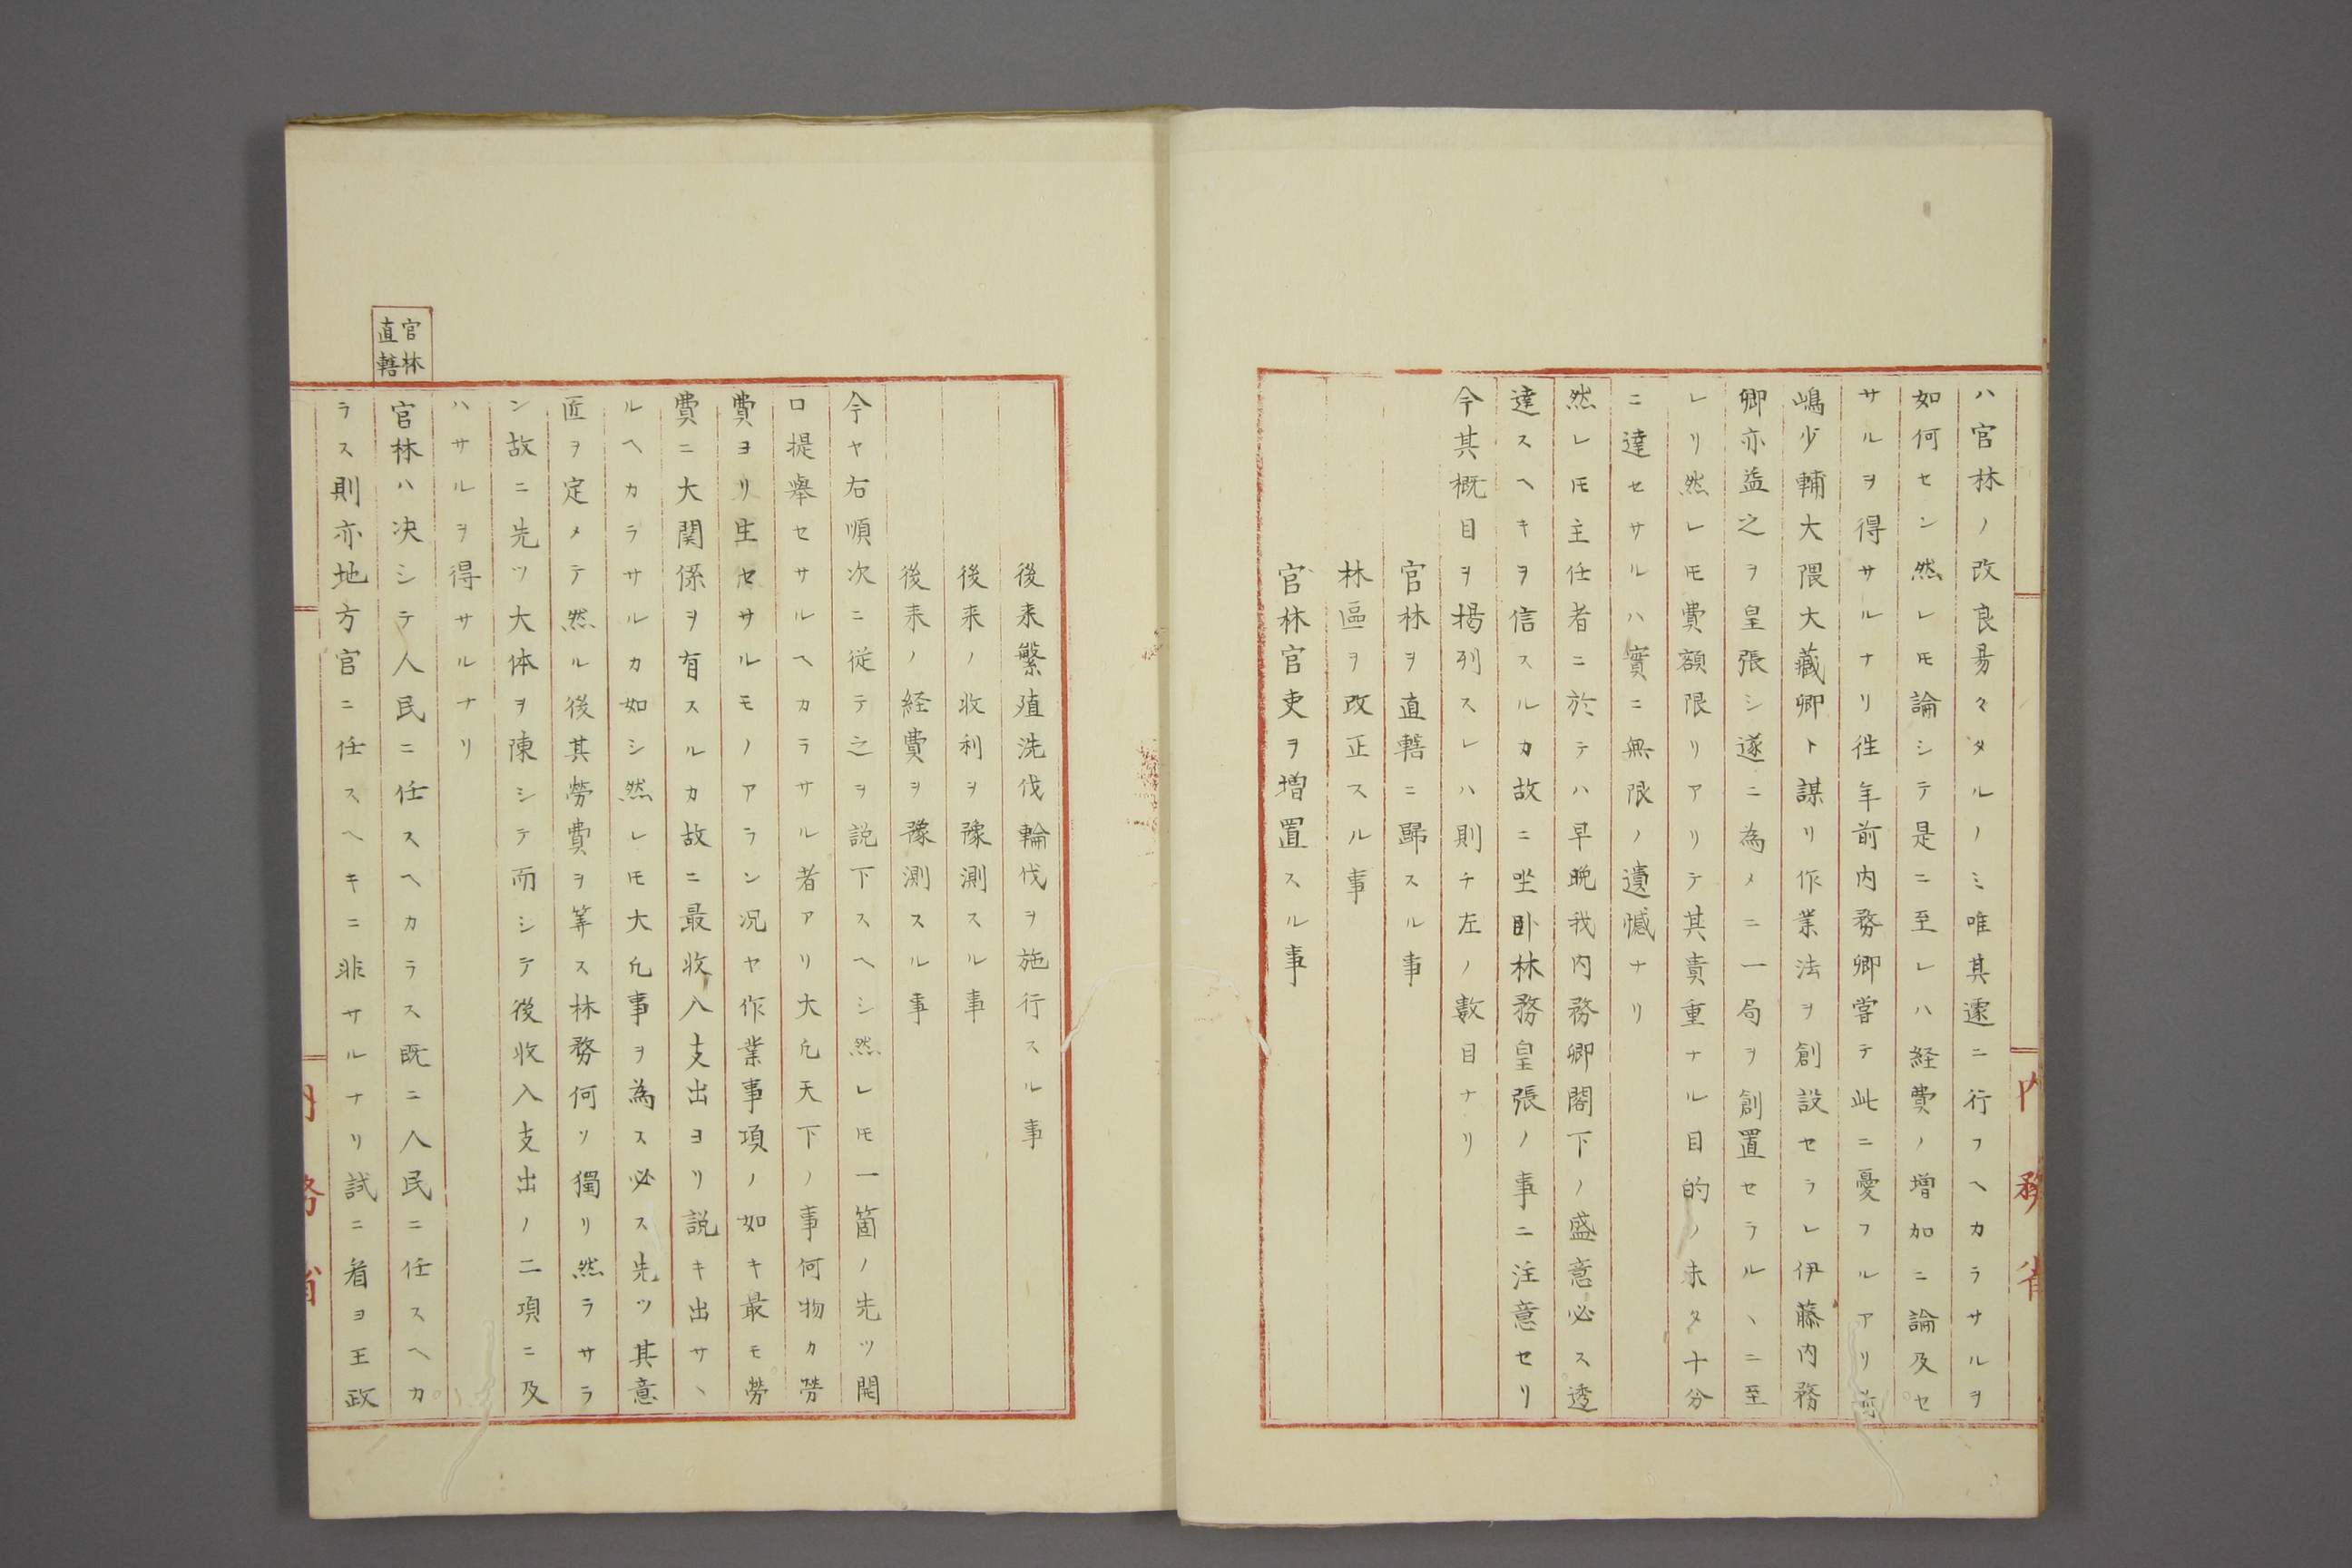 ハ官林ノ改良易々タルノミ唯其遽ニ行フヘカラサルヲ
如何セン然レ𪜈論シテ是ニ至レハ経費ノ増加ニ論及セ
サルヲ得サルナリ徃年前内務卿嘗テ此ニ憂フルアリ
嶋少輔大隈大藏卿ト謀リ作業法ヲ創設セラレ伊藤内務
卿亦益之ヲ皇張シ遂ニ為メニ一局ヲ創置セラルヽニ至
レリ然レ𪜈費額限リアリテ其責重ナル目的ノ未タ十分
ニ達セサルハ實ニ無限ノ遺憾ナリ
然レ𪜈主任者ニ於テハ早晩我内務卿閣下ノ盛意必ス透
達スヘキヲ信スルカ故ニ坐臥林務皇張ノ事ニ注意セリ
今其概目ヲ掲列スレハ則チ左ノ數目ナリ
官林ヲ直轄ニ歸スル事
林區ヲ改正スル事
官林官吏ヲ増置スル事
内務省
後来繁殖洗伐輪伐ヲ施行スル事
後来ノ收利ヲ豫測スル事
後来ノ経費ヲ豫測スル事
今ヤ右順次ニ従テ之ヲ説下スヘシ然レ𪜈一箇ノ先ツ開
口提擧セサルヘカラサル者アリ大凢天下ノ事何物カ勞
費ヨリ生セサルモノアラン况ヤ作業事項ノ如キ最モ勞
費ニ大関係ヲ有スルカ故ニ最收入支出ヨリ説キ出サヽ
ルヘカラサルカ如シ然レ𪜈大凢事ヲ為ス必ス先ツ其意
匠ヲ定メテ然ル後其勞費ヲ筭ス林務何ソ獨リ然ラサラ
ン故ニ先ツ大体ヲ陳シテ而シテ後收入支出ノ二項ニ及
ハサルヲ得サルナリ
官林直轄
官林ハ决シテ人民ニ任スヘカラス既ニ人民ニ任スヘカ
ラス則亦地方官ニ任スヘキニ非サルナリ試ニ看ヨ王政
内務省